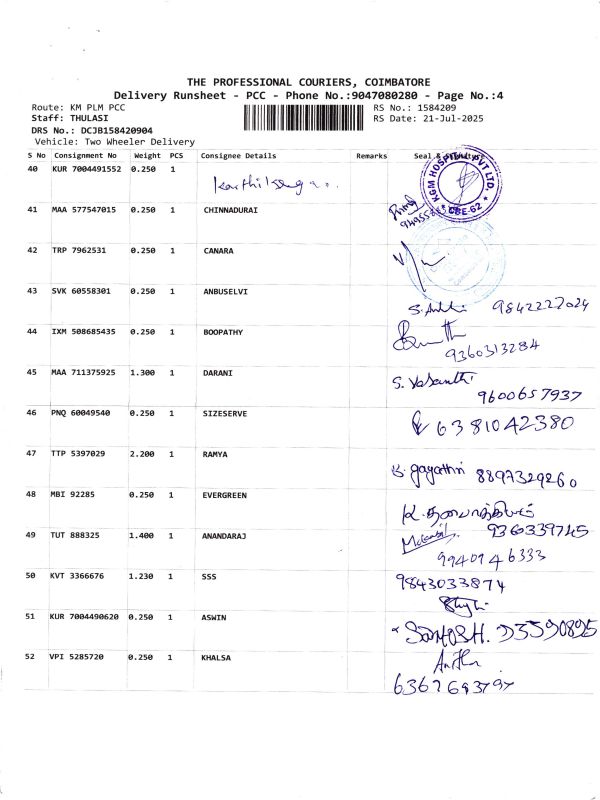 THE PROFESSIONAL COURIERS, COIMBATORE
Delivery Runsheet - PCC - Phone No.:9047080280 - Page No.:4
Route: KM PLM PCC RS No.: 1584209
Staff: THULASI RS Date: 21-Jul-2025
DRS No.: DCJB158420904
Vehicle: Two Wheeler Delivery
S No Consignment No Weight PCS Consignee Details Remarks Seal &
KGM HOSPITAL PVT LTD. * CBE-62 *
40 KUR 7004491552 0.250 1
41 MAA 577547015 0.250 1 CHINNADURAI
42 TRP 7962531 0.250 1 CANARA
43 SVK 60558301 0.250 1 ANBUSELVI
9842227024
44 IXM 508685435 0.250 1 BOOPATHY
9360313284
45 MAA 711375925 1.300 1 DARANI
S. Vasanthi
9600657937
46 PNQ 60049540 0.250 1 SIZESERVE
6381042380
47 TTP 5397029 2.200 1 RAMYA
gayathri 8897329260
48 MBI 92285 0.250 1 EVERGREEN
9360339745
49 TUT 888325 1.400 1 ANANDARAJ
9940946333
50 KVT 3366676 1.230 1 SSS
9843033874
51 KUR 7004490620 0.250 1 ASWIN
SANTOSH.
52 VPI 5285720 0.250 1 KHALSA
Anitha